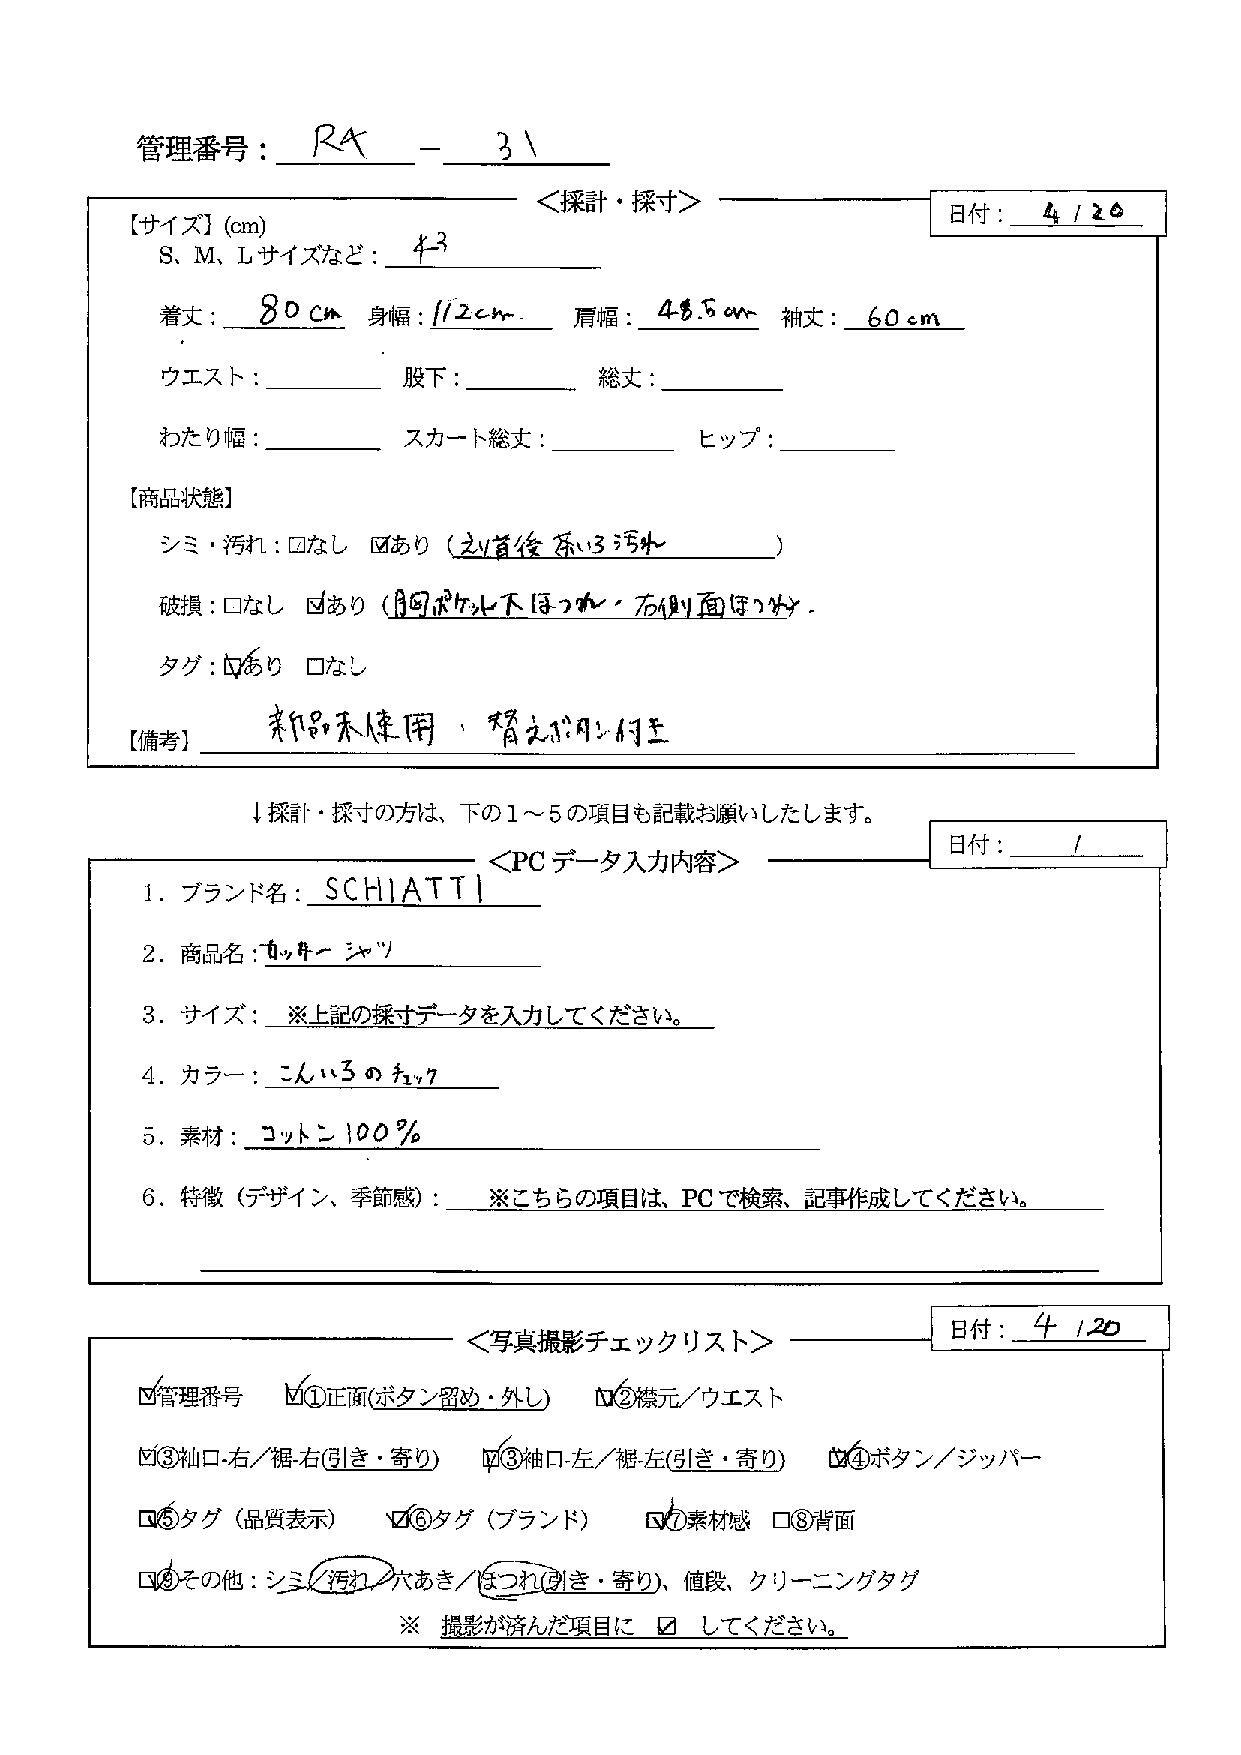 管理番号： RA － 31
＜採計・採寸＞
日付： 4 / 20
【サイズ】(cm)
S、M、Lサイズなど： 43
着丈： 80cm 身幅：112cm. 肩幅： 48.5cm 袖丈： 60cm
ウエスト： 股下： 総丈：
わたり幅： スカート総丈： ヒップ：
【商品状態】
シミ・汚れ：☑なし ☑あり（えり首後 茶いろ汚れ ）
破損：□なし ☑あり（胸ポケット下ほつれ・右側面ほつれ）.
タグ：☑あり □なし
【備考】 新品未使用、替えボタン付き
↓採計・採寸の方は、下の１～５の項目も記載お願いしたします。
日付： /
＜PCデータ入力内容＞
1．ブランド名： SCHIATTI
2．商品名：カッターシャツ
3．サイズ： ※上記の採寸データを入力してください。
4．カラー： こんいろのチェック
5．素材： コットン100%
6．特徴（デザイン、季節感）： ※こちらの項目は、PCで検索、記事作成してください。
日付： 4 / 20
＜写真撮影チェックリスト＞
☑管理番号 ☑①正面(ボタン留め・外し) ☑②襟元／ウエスト
☑③袖口-右／裾-右(引き・寄り) ☑③袖口-左／裾-左(引き・寄り) ☑④ボタン／ジッパー
☑⑤タグ（品質表示） ☑⑥タグ（ブランド） ☑⑦素材感 □⑧背面
☑⑨その他：シミ／汚れ／穴あき／ほつれ(引き・寄り)、値段、クリーニングタグ
※ 撮影が済んだ項目に ☑ してください。